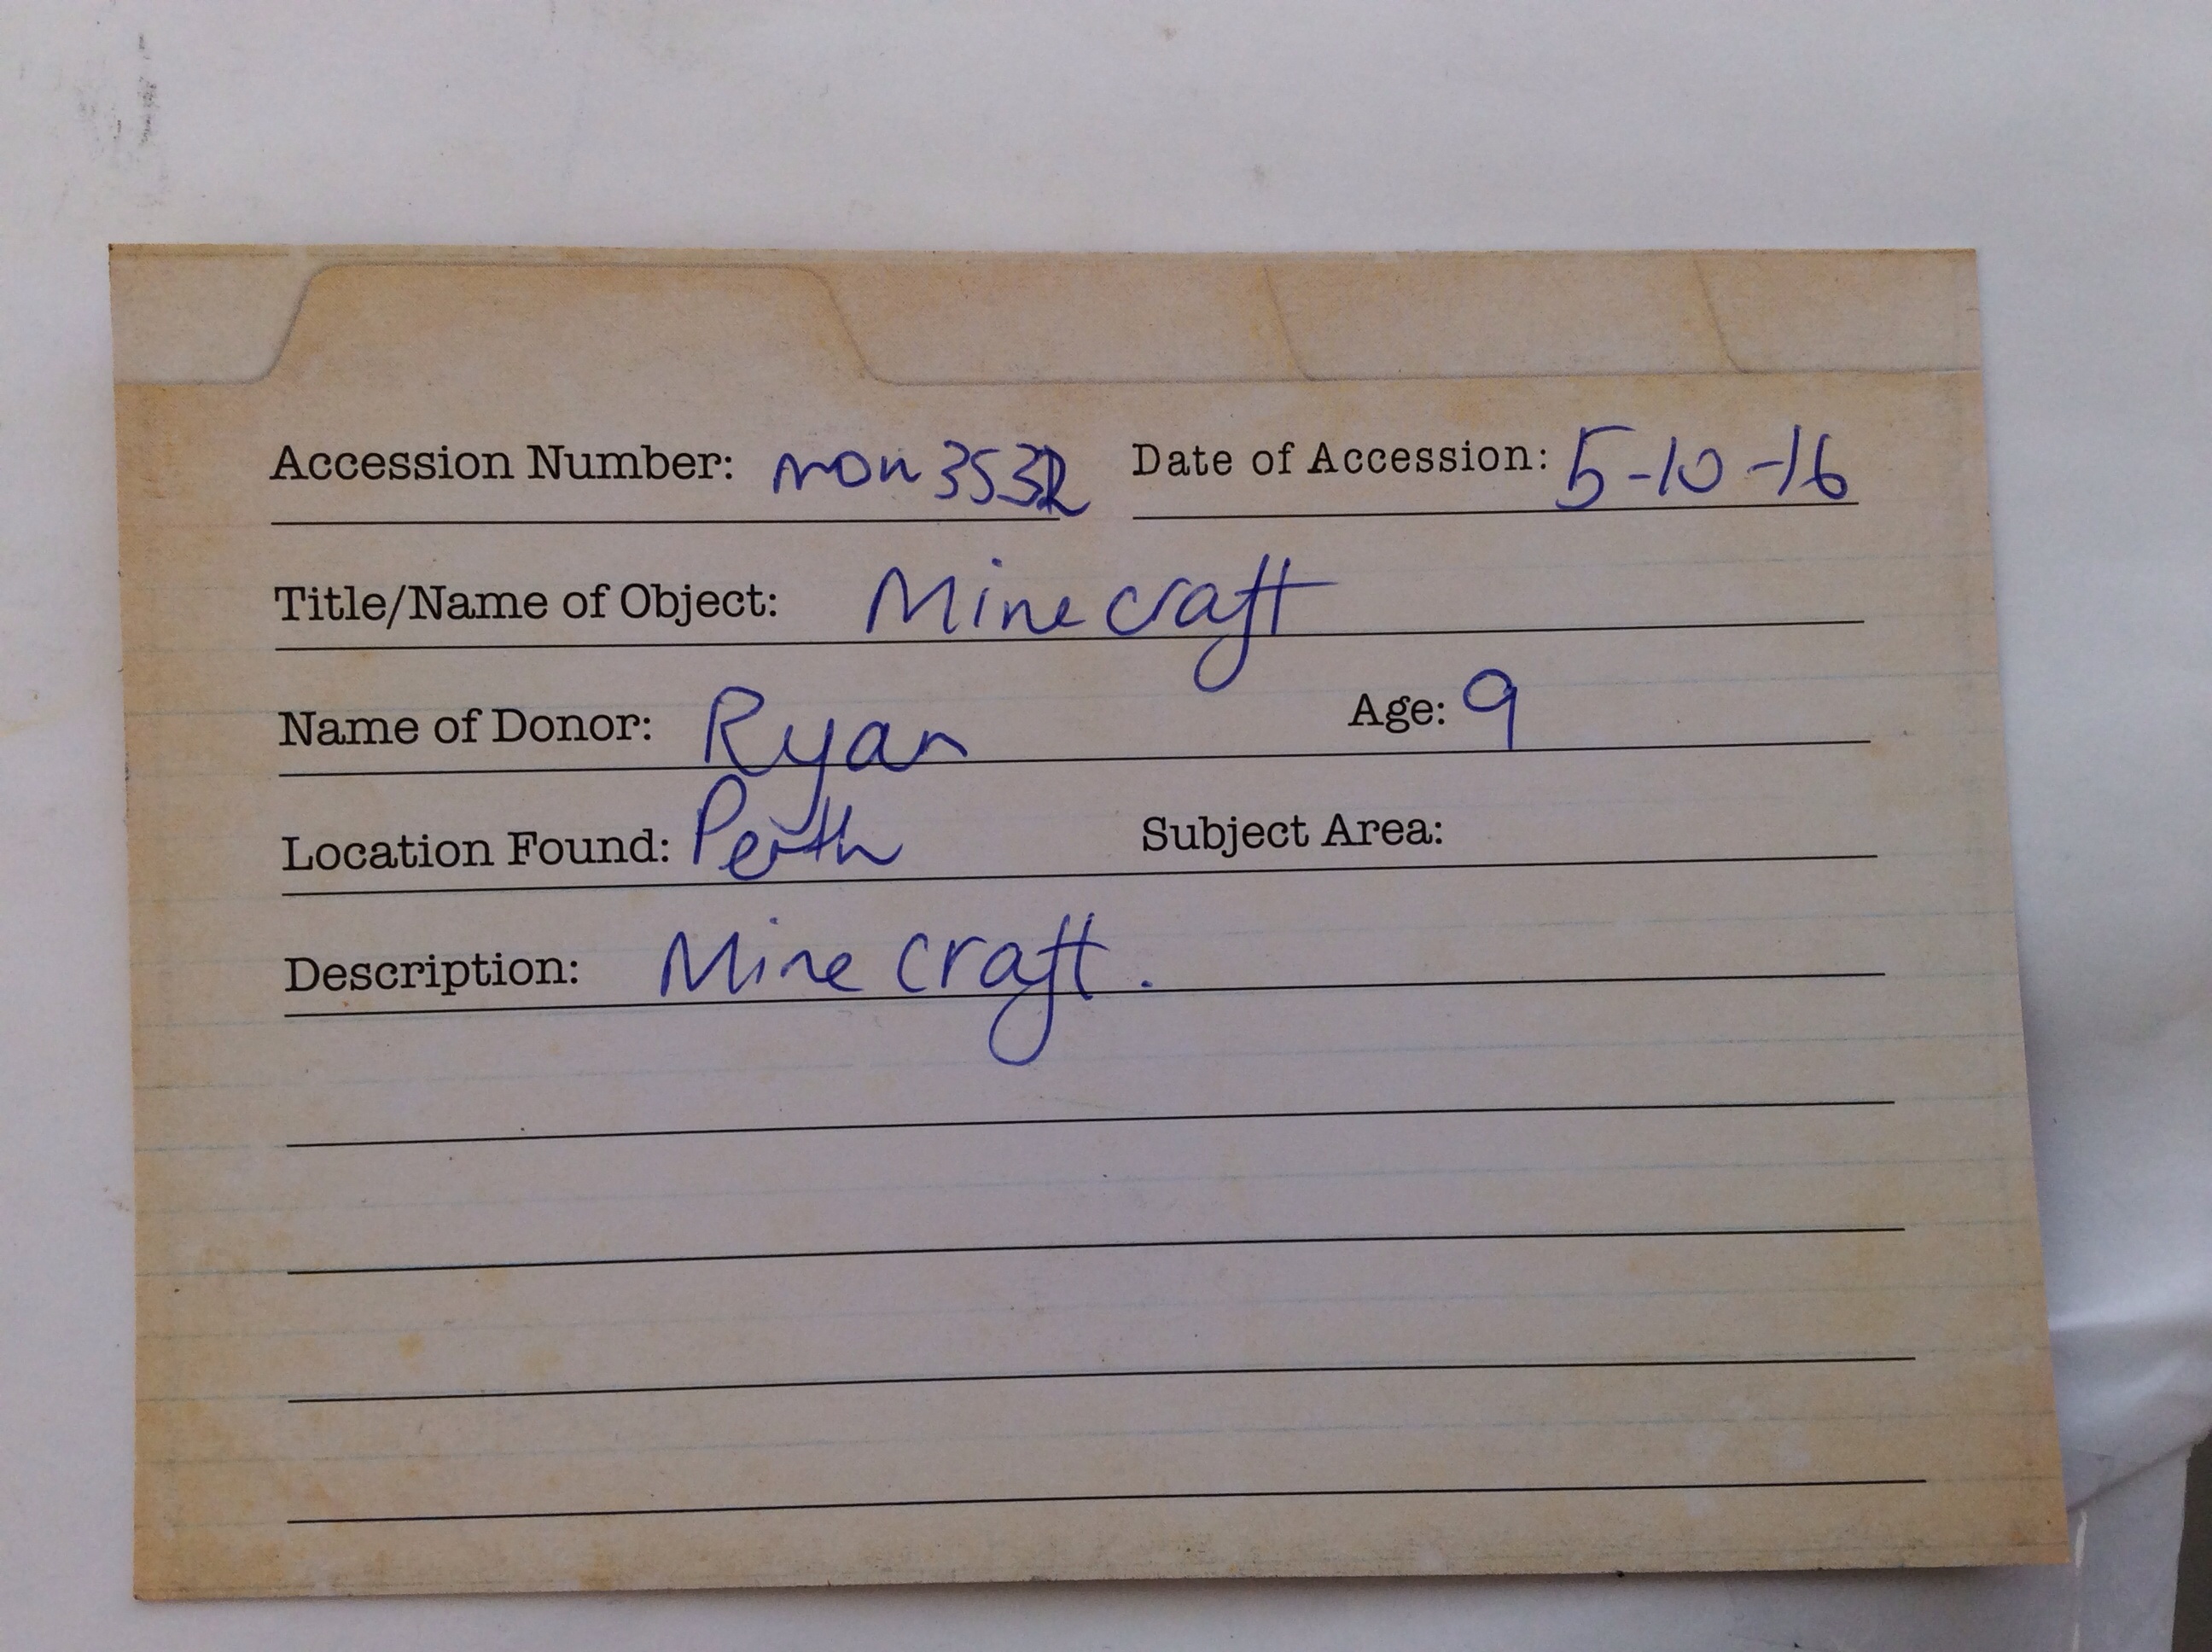 Accession Number: mon3532 Date of Accession: 5-10-16
Title/Name of Object: Minecraft
Name of Donor: Ryan Age: 9
Location Found: Perth Subject Area:
Description: Mine craft.